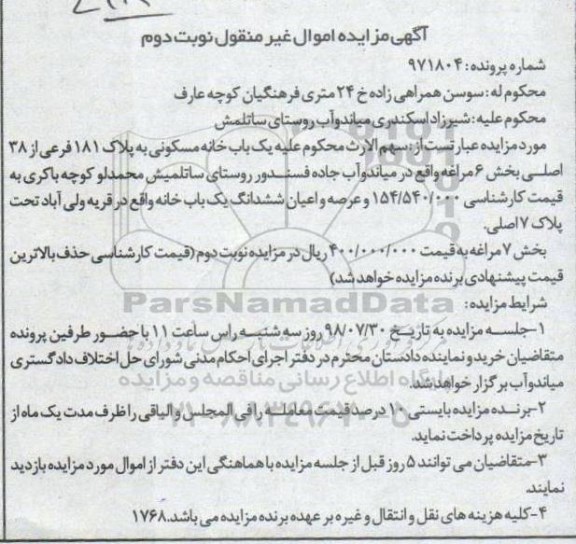 آگهی مزایده اموال غیر منقول نوبت دوم
شماره پرونده: ۹۷۱۸۰۴
محکوم له: سوسن همراهی زاده خ ۲۴ متری فرهنگیان کوچه عارف
محکوم علیه: شیرزاد اسکندری میاندوآب روستای ساتلمش
مورد مزایده عبارتست از: سهم الارث محکوم علیه یک باب خانه مسکونی به پلاک ۱۸۱ فرعی از ۳۸
اصلی بخش ۶ مراغه واقع در میاندوآب جاده فسندور روستای ساتلمیش محمدلو کوچه باکری به
قیمت کارشناسی ۱۵۴/۵۴۰/۰۰۰ و عرصه و اعیان ششدانگ یک باب خانه واقع در قریه ولی آباد تحت
پلاک ۷ اصلی.
بخش ۷ مراغه به قیمت ۴۰۰/۰۰۰/۰۰۰ ریال در مزایده نوبت دوم (قیمت کارشناسی حذف بالاترین
قیمت پیشنهادی برنده مزایده خواهد شد)
ParsNamadData
شرایط مزایده:
۱-جلسه مزایده به تاریخ ۹۸/۰۷/۳۰ روز سه شنبه راس ساعت ۱۱ با حضور طرفین پرونده
متقاضیان خرید و نماینده دادستان محترم در دفتر اجرای احکام مدنی شورای حل اختلاف دادگستری
میاندوآب برگزار خواهد شد.
پایگاه اطلاع رسانی مناقصه و مزایده
۲-برنده مزایده بایستی ۱۰ درصد قیمت معامله را فی المجلس و الباقی را ظرف مدت یک ماه از
۰۲۱-۸۸۳۴۹۶۷۰-۵
تاریخ مزایده پرداخت نماید.
۳-متقاضیان می توانند ۵ روز قبل از جلسه مزایده با هماهنگی این دفتر از اموال مورد مزایده بازدید
نمایند.
۴-کلیه هزینه های نقل و انتقال و غیره بر عهده برنده مزایده می باشد. ۱۷۶۸